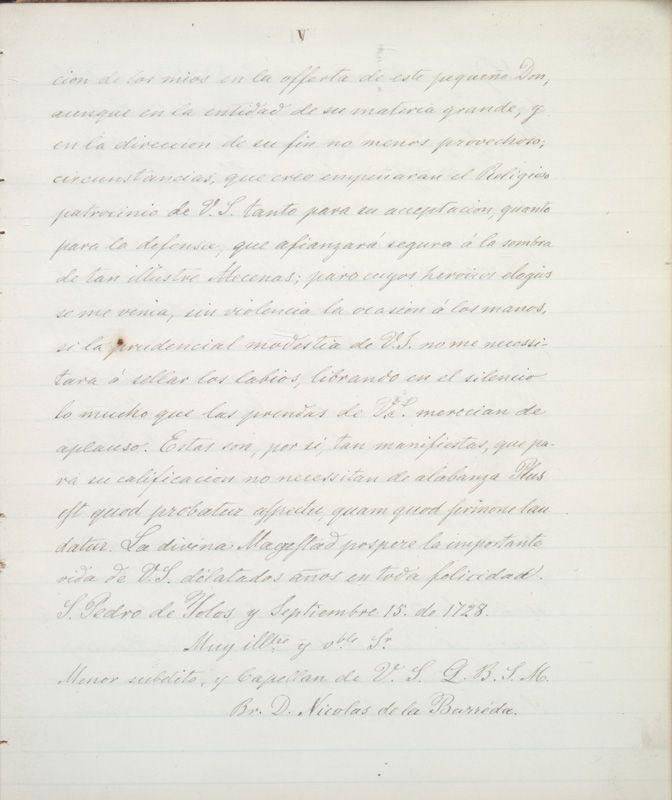 V
cion de los mios en la offerta de este pequeño Don,
aunque en la entidad de su materia grande, y
en la direccion de su fin no menos provechoso;
circunstancias, que creo empeñaran el Religioso
patrocinio de V.S. tanto para su acceptacion, quanto
para la defensa, que afianzará segura á la sombra
de tan illustre Mecenas; para cuyos heroicos elogios
se me venia, sin violencia la ocasion á los manos,
si la prudencial modestia de V.S. no me necessi-
tara á sellar los labios, librando en el silencio
lo mucho que las prendas de V.S. merecian de
aplauso. Estas son, por si, tan manifiestas, que pa-
ra su calificacion no necessitan de alabanza Plus
est quod probatur aspectu, quam quod sermone lau
datur. La divina Magestad pospere la importante
vida de V.S. dilatados años en toda felicidad.
S. Pedro de Yolos y Septiembre 15. de 1728.
Muy illtre y vble Sr
Menor subdito, y Capellan de V. S. Q. B. S. M.
Br. D. Nicolas de la Barréda.